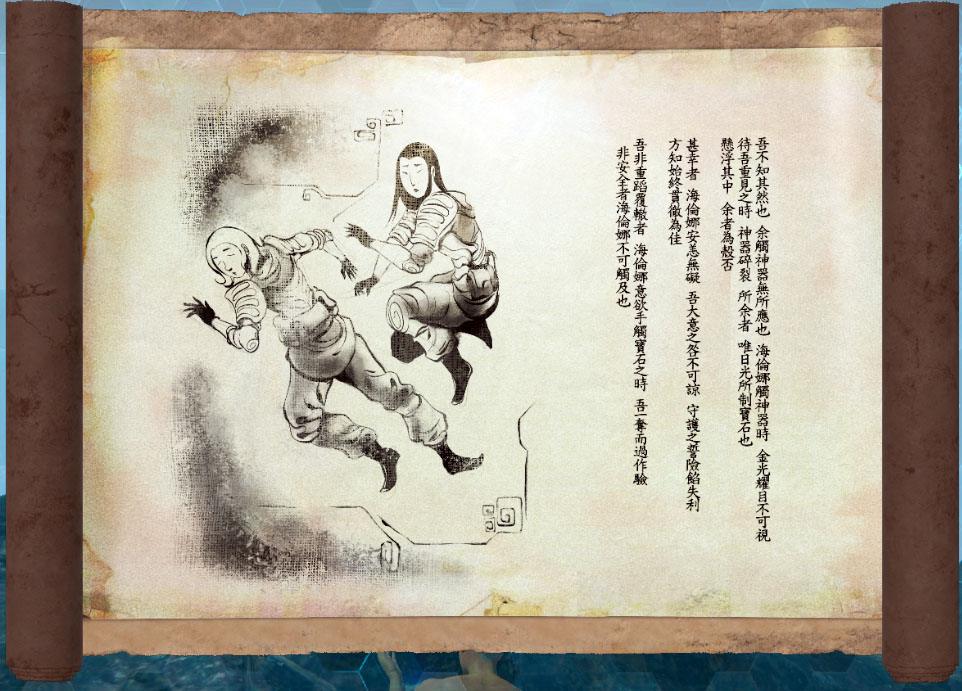 吾不知其然也 余觸神器無所應也 海倫娜觸神器時 金光耀目不可視
待吾重見之時 神器碎裂 所余者 唯日光所制寶石也
懸浮其中 余者為殼否
甚幸者 海倫娜安恙無礙 吾大意之咎不可諒 守護之誓險餡失利
方知始終貫徹為佳
吾非重蹈覆轍者 海倫娜意欲手觸寶石之時 吾一奪而過作驗
非安全者海倫娜不可觸及也